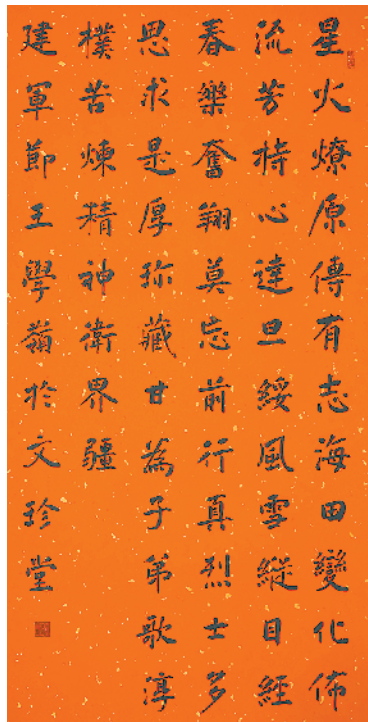 星火燎原傳有志海田變化佈
流芳持心達旦綏風雪縱目經
春樂奮翔莫忘前行真烈士多
思求是厚珎藏甘為子弟歌淳
樸苦煉精神衛界疆
建軍節王學嶺於文珍堂